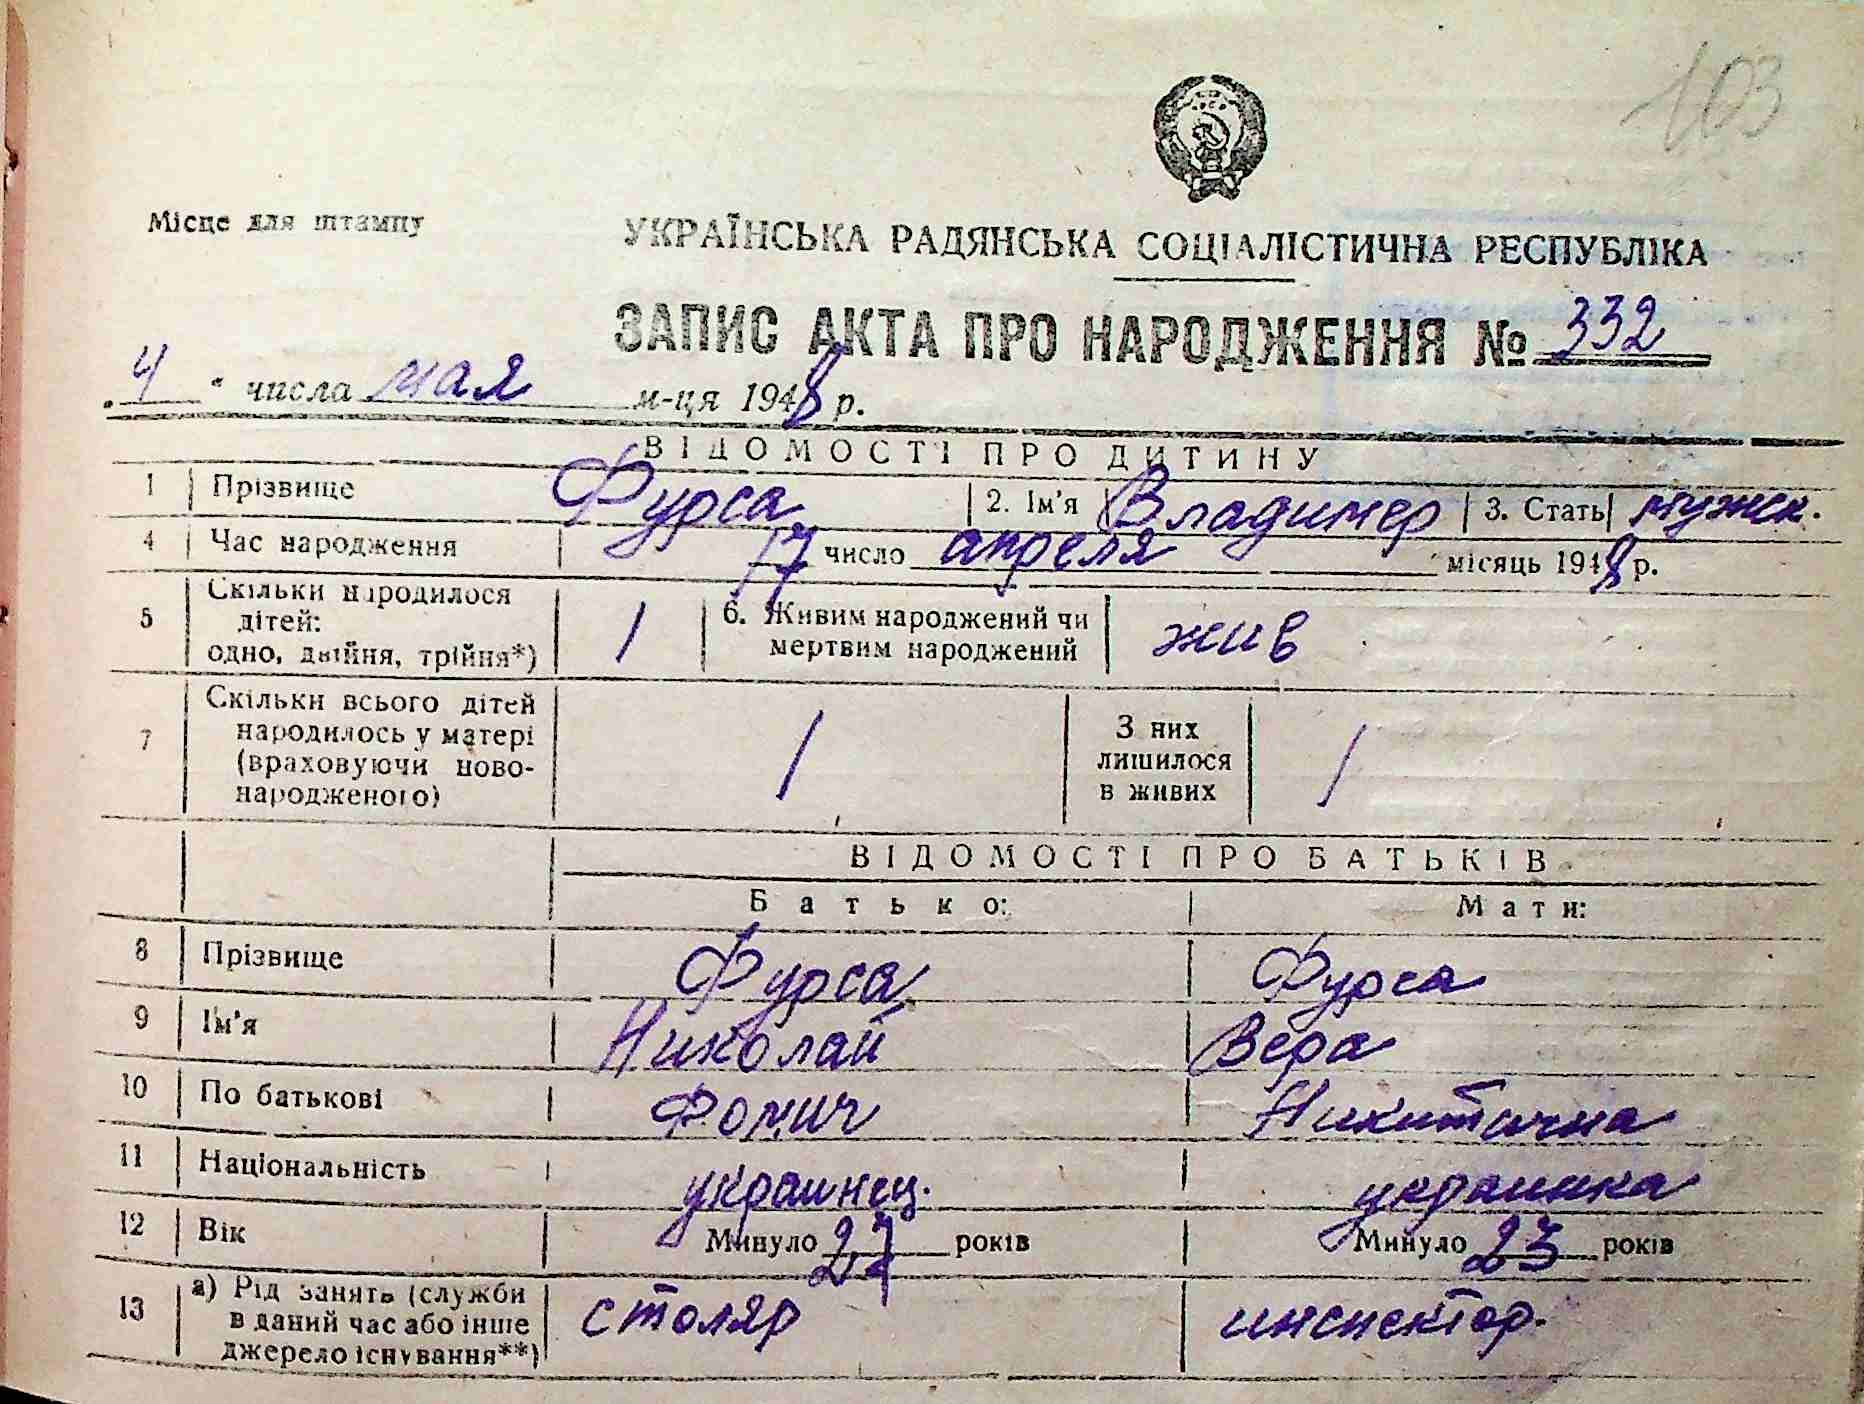 103
Місце для штампу
УКРАЇНСЬКА РАДЯНСЬКА СОЦІАЛІСТИЧНА РЕСПУБЛІКА
ЗАПИС АКТА ПРО НАРОДЖЕННЯ № 332
„4“ числа мая м-ця 1948 р.
ВІДОМОСТІ ПРО ДИТИНУ
1 Прізвище Фурса 2. Ім'я Владимер 3. Стать мужск.
4 Час народження 17 число апреля місяць 1948 р.
5 Скільки народилося дітей: одно, двійня, трійня*) 1 6. Живим народжений чи мертвим народжений жив
7 Скільки всього дітей народилось у матері (враховуючи ново-народженого) 1 З них лишилося в живих 1
ВІДОМОСТІ ПРО БАТЬКІВ
Батько: Мати:
8 Прізвище Фурса Фурса
9 Ім'я Николай Вера
10 По батькові Фомич Никитична
11 Національність украинец. украинка
12 Вік Минуло 27 років Минуло 23 років
13 а) Рід занять (служби в даний час або інше джерело існування**) столяр инспектор.